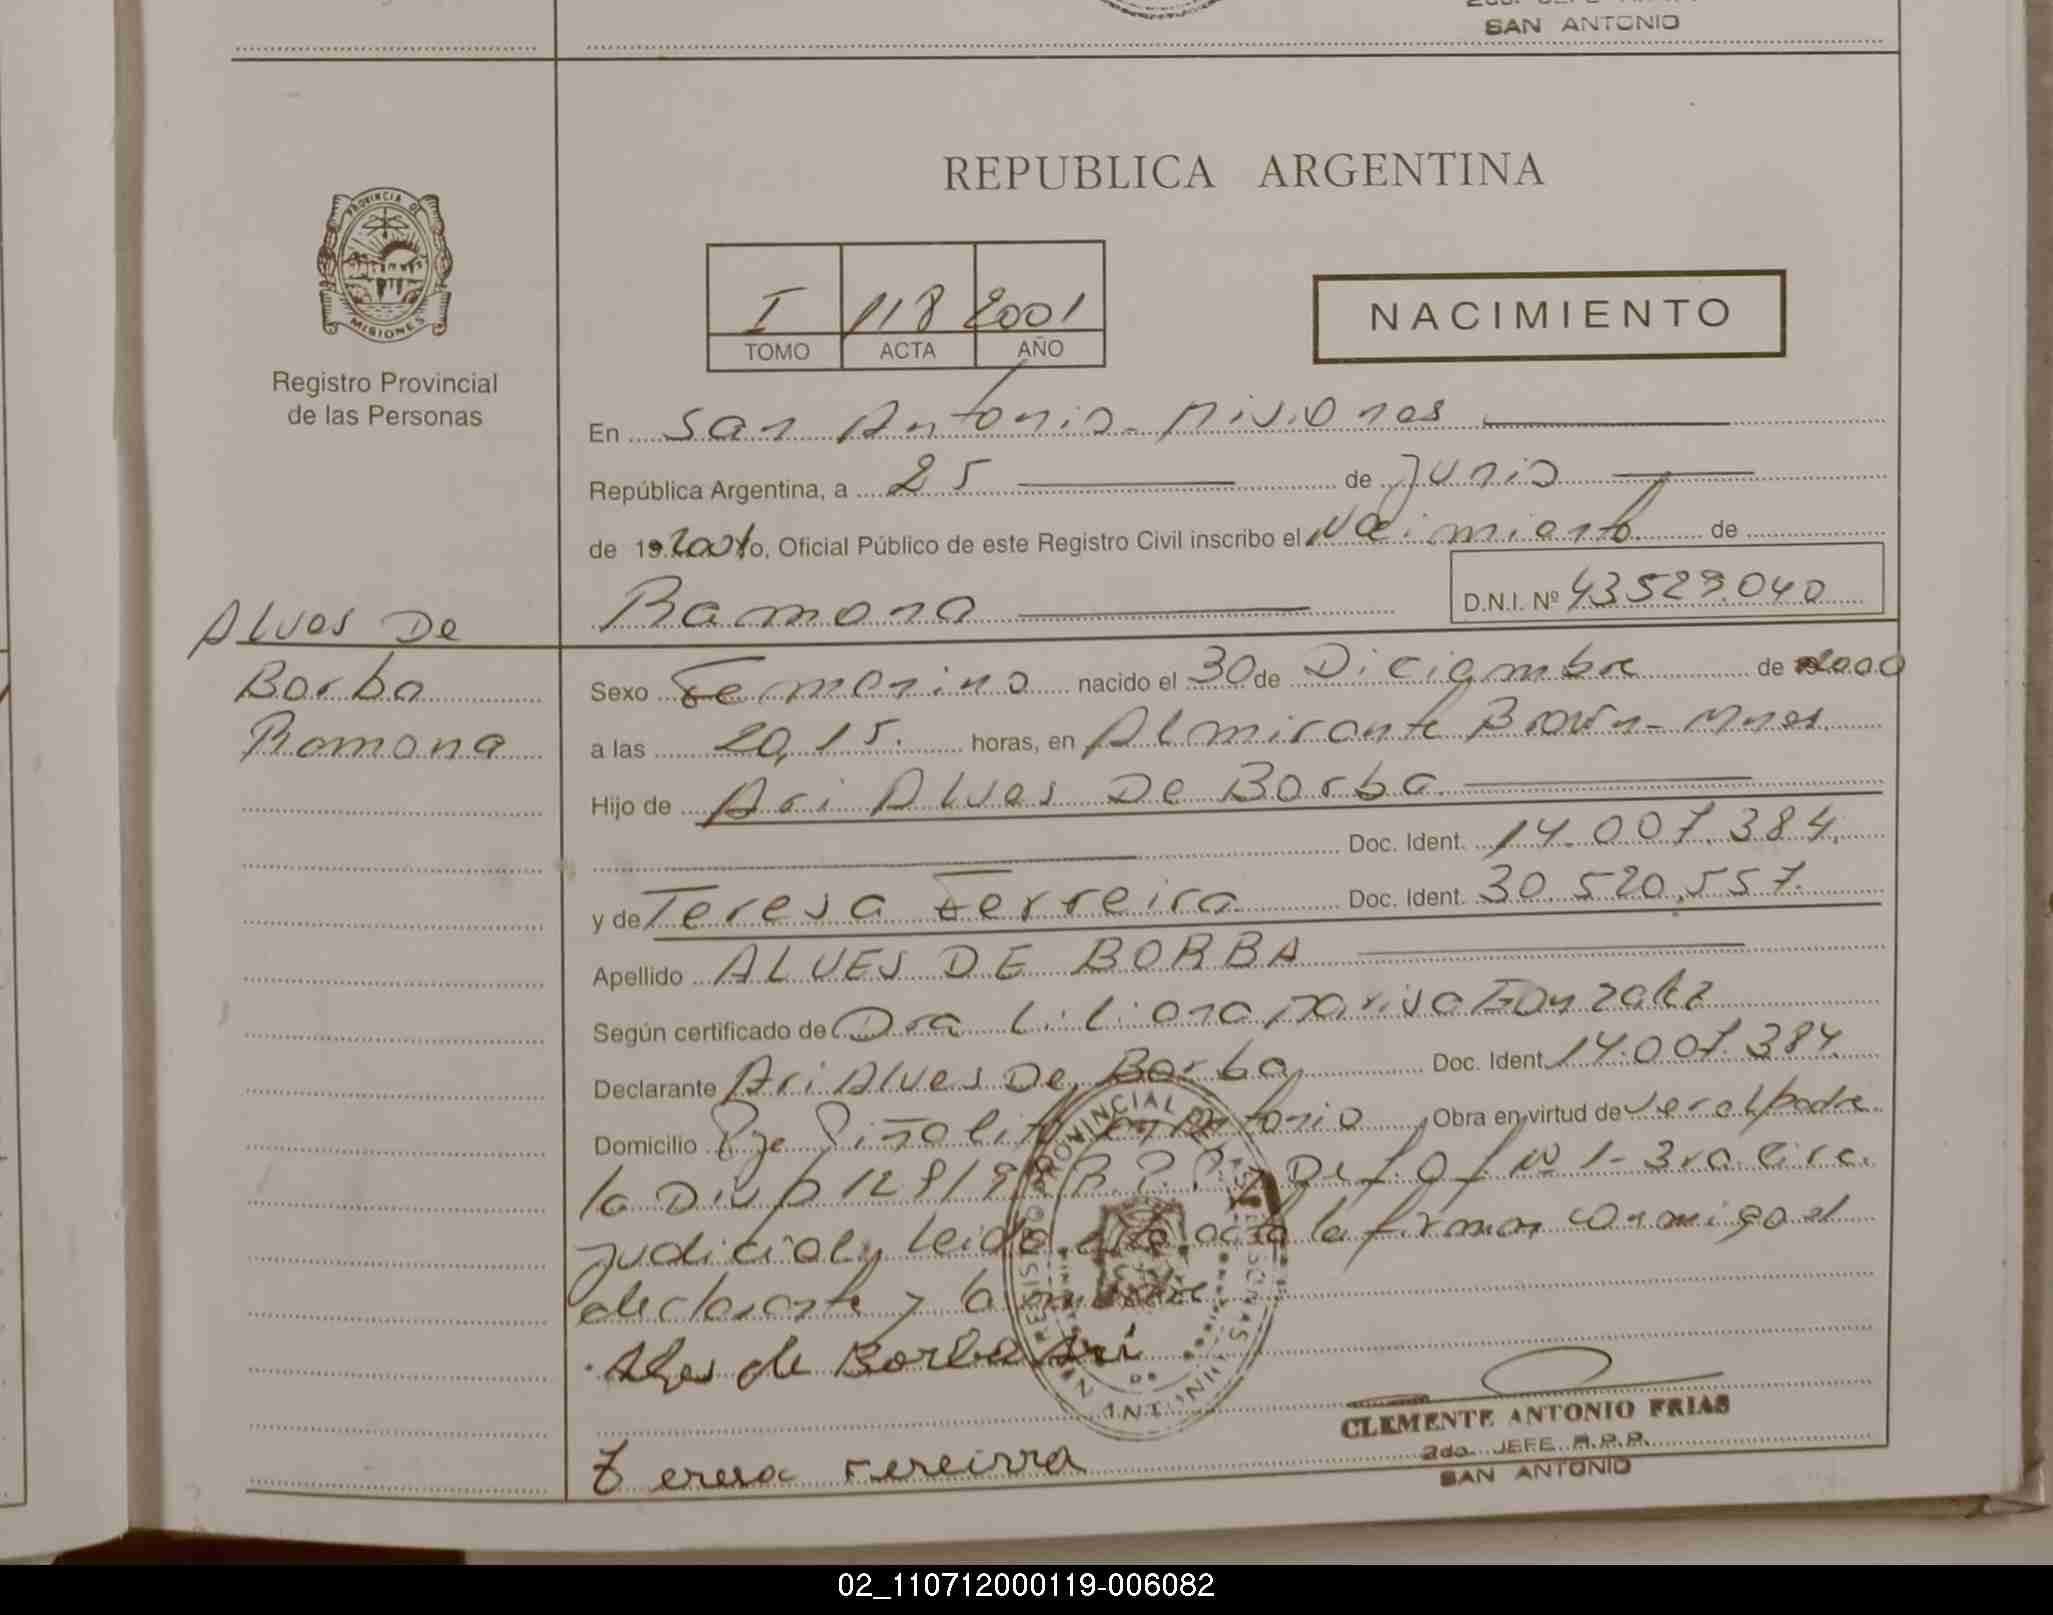 SAN ANTONIO
REPUBLICA ARGENTINA
PROVINCIA DE
MISIONES
Registro Provincial
de las Personas
I 118 2001
TOMO ACTA AÑO
NACIMIENTO
En San Antonio - Misiones
República Argentina, a 25 de Junio
de 19 2001 yo, Oficial Público de este Registro Civil inscribo el Nacimiento de
Ramona D.N.I. Nº 43529.040
Alves De
Borba
Ramona
Sexo Femenino nacido el 30 de Diciembre de 2000
a las 20,15. horas, en Almirante Brown - Mnes.
Hijo de Ari Alves De Borba
Doc. Ident. 14.007.384.
y de Teresa Ferreira Doc. Ident. 30.520.557.
Apellido ALVES DE BORBA
Según certificado de Dra Liliana Marisa Gonzalez
Declarante Ari Alves De Borba Doc. Ident. 14.007.384.
Domicilio Pje Piñalito San Antonio Obra en virtud de ser el padre
la Disp 128/9 R.P.P. Def. Of Nº 1 - 3ra. Circ.
Judicial y leida esta acta la firman conmigo el
declarante y la madre
Alves de Borba Ari
Teresa Fereirra
CLEMENTE ANTONIO FRIAS
2do. JEFE R.P.P.
SAN ANTONIO
02_110712000119-006082